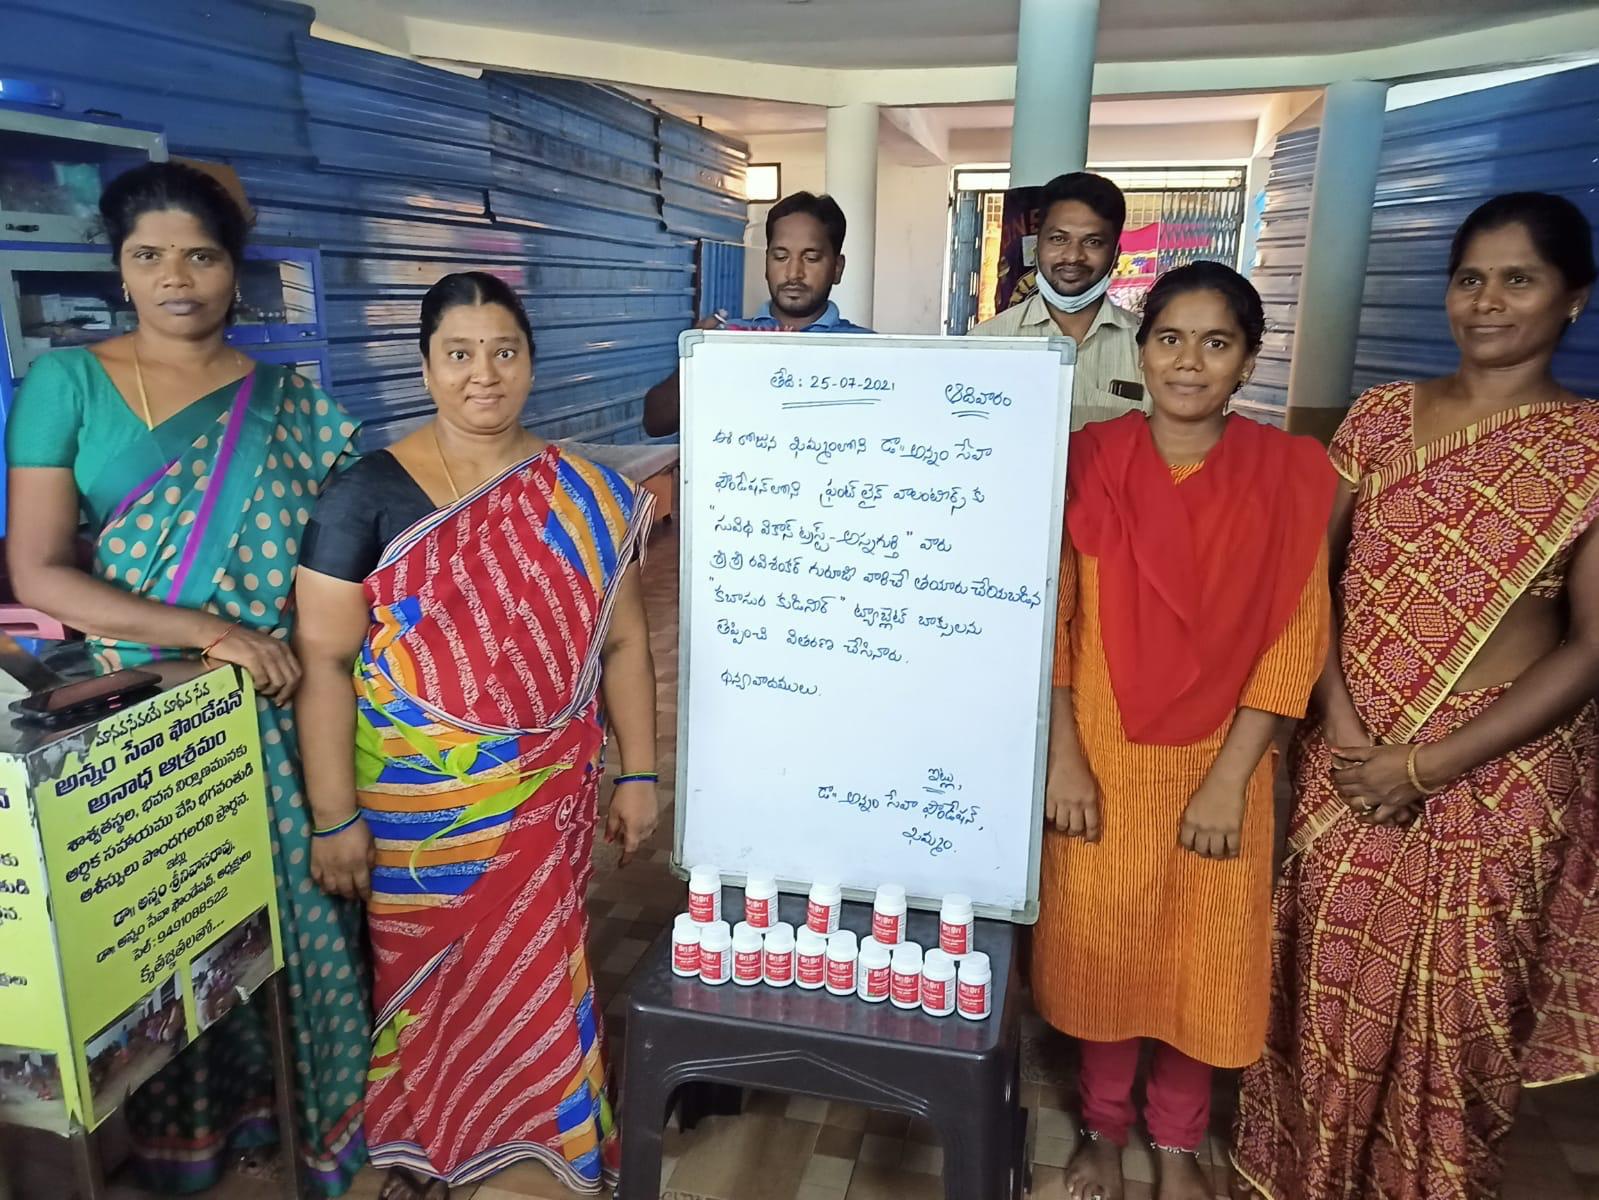 తేది: 25-07-2021 ఆదివారం
ఈ రోజున ఖమ్మంలోని డా" అన్నం సేవా
ఫౌండేషన్‌లోని ఫ్రంట్ లైన్ వాలంటీర్స్ కు
"సువిధ వికాస్ ట్రస్ట్-అన్నగుర్తి" వారు
శ్రీ శ్రీ రవిశంకర్ గురూజీ వారిచే తయారు చేయబడిన
"కబాసుర కుడినీర్" ట్యాబ్లెట్ బాక్సులను
తెప్పించి వితరణ చేసినారు.
ధన్యవాదములు.
ఇట్లు,
డా" అన్నం సేవా ఫౌండేషన్,
ఖమ్మం.
మానవసేవయే మాధవ సేవ
అన్నం సేవా ఫౌండేషన్
అనాధ ఆశ్రమం
శాశ్వతస్థల, భవన నిర్మాణమునకు
ఆర్థిక సహాయము చేసి భగవంతుడి
ఆశీస్సులు పొందగలరని ప్రార్థన.
ఇట్లు
డా॥ అన్నం శ్రీనివాసరావు,
డా॥ అన్నం సేవా ఫౌండేషన్, అధ్యక్షులు
సెల్: 9491088522
కృతజ్ఞతలతో...
Sri Sri